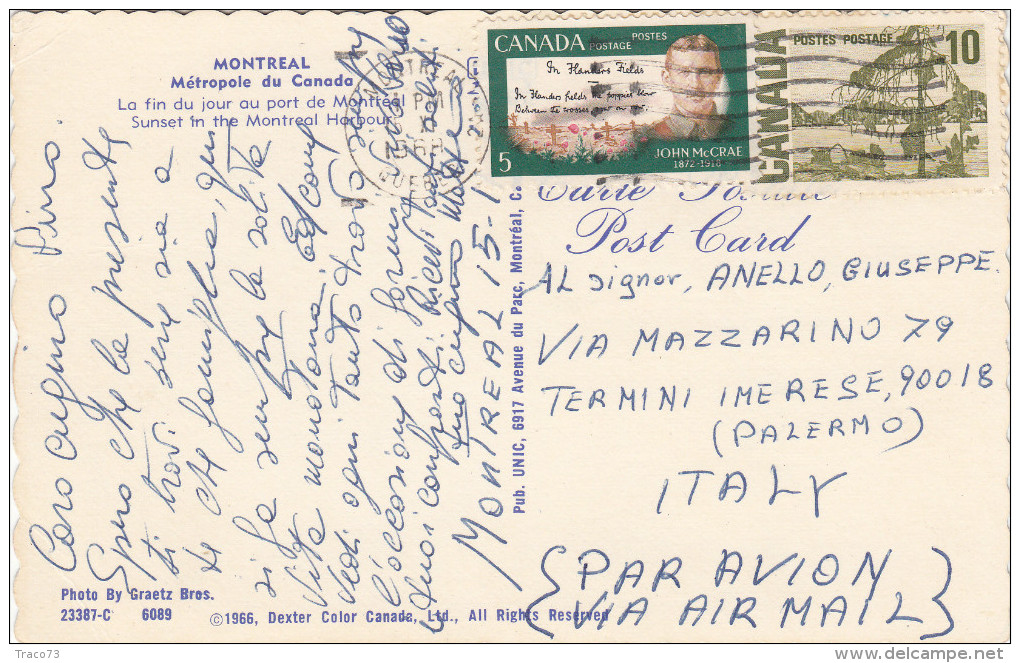 MONTREAL
Métropole du Canada
La fin du jour au port de Montréal
Sunset in the Montreal Harbour
CANADA
POSTES
POSTAGE
In Flanders Fields
In Flanders fields the poppies blow
Between the crosses, row on row,
5
JOHN McCRAE
1872-1918
CANADA
POSTES POSTAGE
10
Carte Postale
Post Card
AL signor, ANELLO, GIUSEPPE.
VIA MAZZARINO 79
TERMINI IMERESE, 90018
(PALERMO)
ITALY
{PAR AVION
VIA AIR MAIL}
Caro cugino Pino
Spero che la presente
ti trovi sia a
te che famiglia, qui
si fa sempre la solita
vita monotona.
Vedi ogni tanto trovo sempre
l'occasione di
tuoi
tuo cugino
MONTREAL 15-1
Pub. UNIC, 6917 Avenue du Parc, Montréal, C
Photo By Graetz Bros.
23387-C 6089
©1966, Dexter Color Canada, Ltd., All Rights Reserved
Traco73
delcampe.net